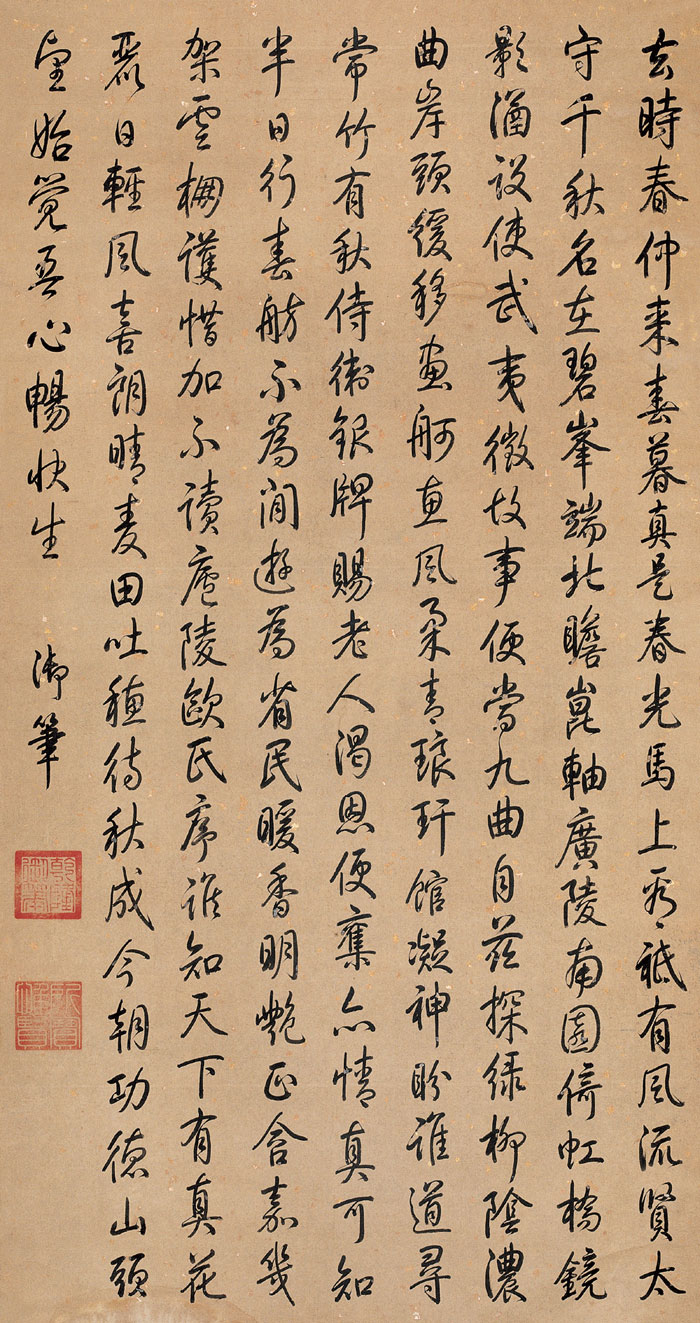 去時春仲来春暮真是春光馬上看祗有風流賢太
守千秋名在碧峯端北瞻崑軸廣陵南園倚虹橋鏡
影涵設使武夷徵故事便當九曲自茲探緑柳陰濃
曲岸頭緩移畫舸恵風柔青琅玕館凝神盼誰道尋
常竹有秋侍衛銀牌賜老人渴恩便奮亦情真可知
半日行春舫不為閒遊為省民暖香明艷正含嘉幾
架雲棚護惜加不讀廬陵歐氏序誰知天下有真花
麗日輕風喜朗晴麦田吐穗待秋成今朝功德山頭
望始覺吾心暢快生
御筆